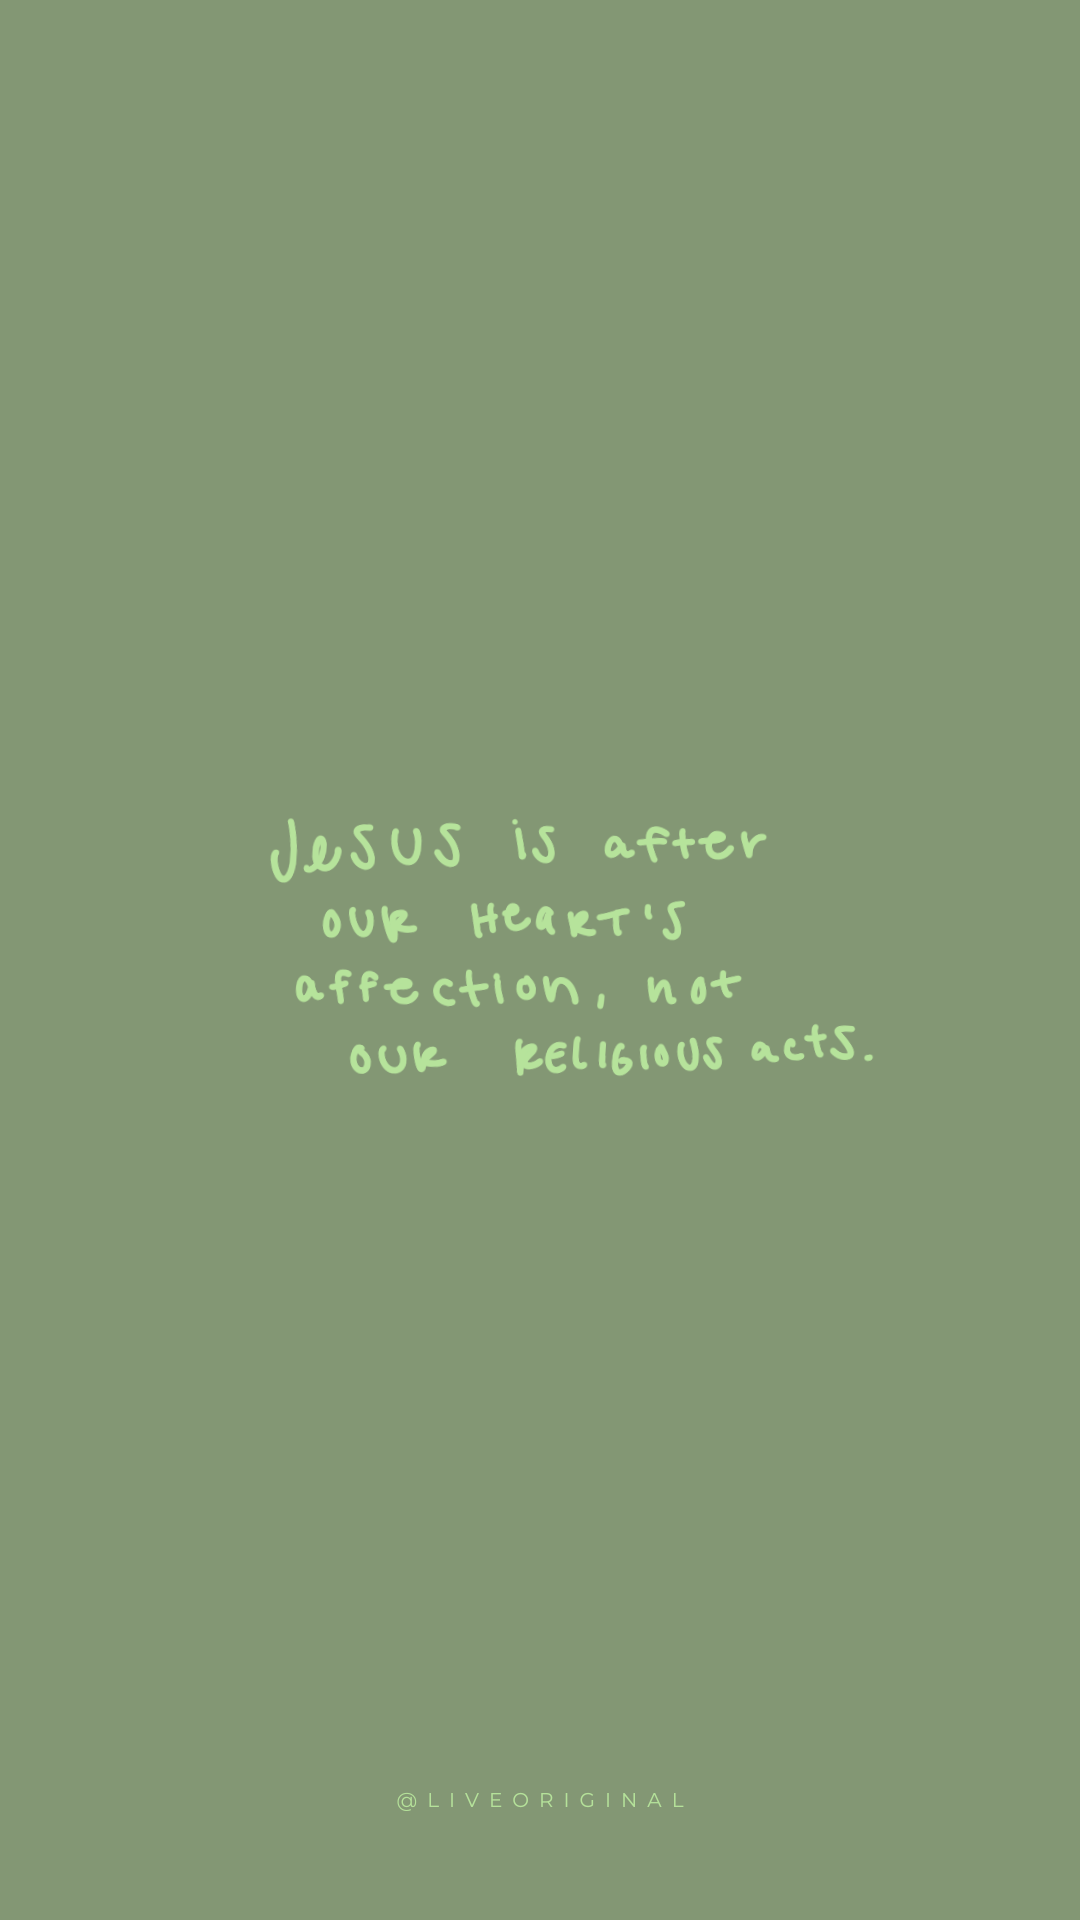 Jesus is after
our Heart's
affection, not
our Religious acts.
@LIVEORIGINAL